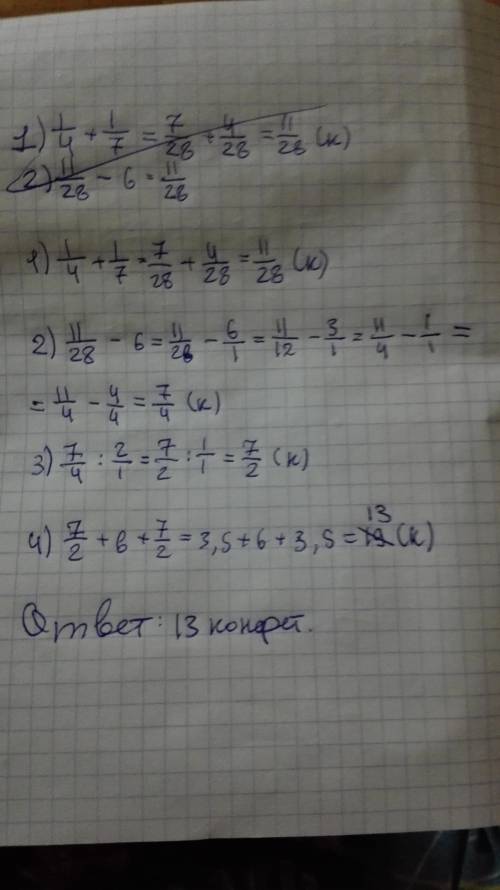 1) 1/4 + 1/7 = 7/28 + 4/28 = 11/28 (к)
2) 11/28 - 6 = 11/28
1) 1/4 + 1/7 = 7/28 + 4/28 = 11/28 (к)
2) 11/28 - 6 = 11/28 - 6/1 = 11/12 - 3/1 = 11/4 - 1/1 =
= 11/4 - 4/4 = 7/4 (к)
3) 7/4 : 2/1 = 7/2 : 1/1 = 7/2 (к)
4) 7/2 + 6 + 7/2 = 3,5 + 6 + 3,5 = 13 (к)
Ответ: 13 конфет.